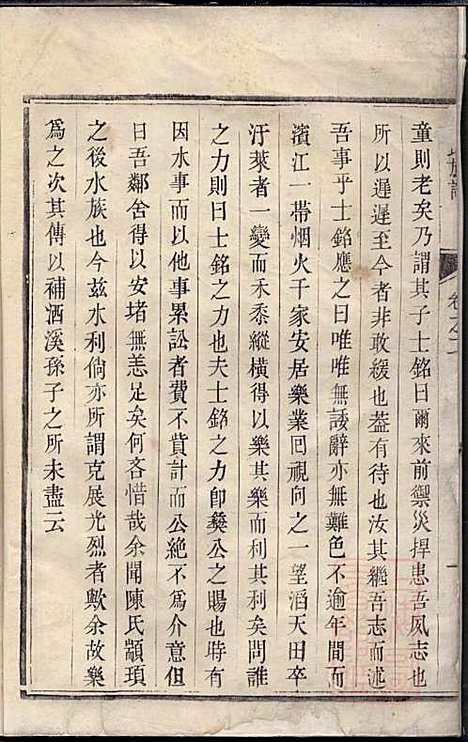 童則老矣乃謂其子士銘曰爾來前禦災捍患吾夙志也
所以遲遲至今者非敢緩也葢有待也汝其繼吾志而述
吾事乎士銘應之曰唯唯無諉辭亦無難色不逾年間而
濱江一帶烟火千家安居樂業囘視向之一望滔天田卒
汙萊者一變而禾黍縱橫得以樂其樂而利其利矣問誰
之力則曰士銘之力也夫士銘之力卽彜公之賜也時有
因水事而以他事累訟者費不貲計而公絶不爲介意但
曰吾鄰舍得以安堵無恙足矣何吝惜哉余聞陳氏顓頊
之後水族也今兹水利倘亦所謂克展光烈者歟余故樂
爲之次其傳以補酒溪孫子之所未盡云
族譜
卷之二
一